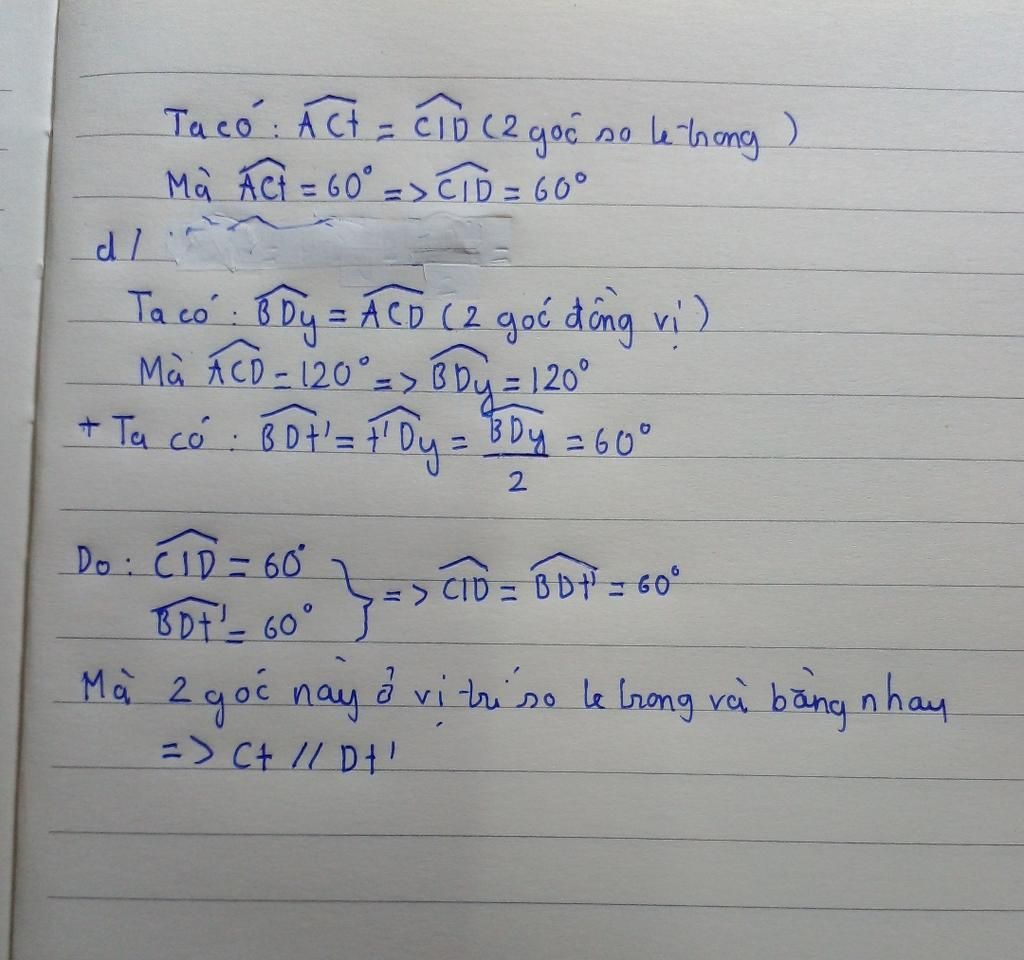 Ta có: ACt = CID (2 góc so le trong)
Mà ACt = 60° => CID = 60°
d/
Ta có: BDy = ACD (2 góc đồng vị)
Mà ACD = 120° => BDy = 120°
+ Ta có: BDt' = t'Dy = BDy/2 = 60°
Do: CID = 60°
BDt' = 60° } => CID = BDt' = 60°
Mà 2 góc này ở vị trí so le trong và bằng nhau
=> Ct // Dt'